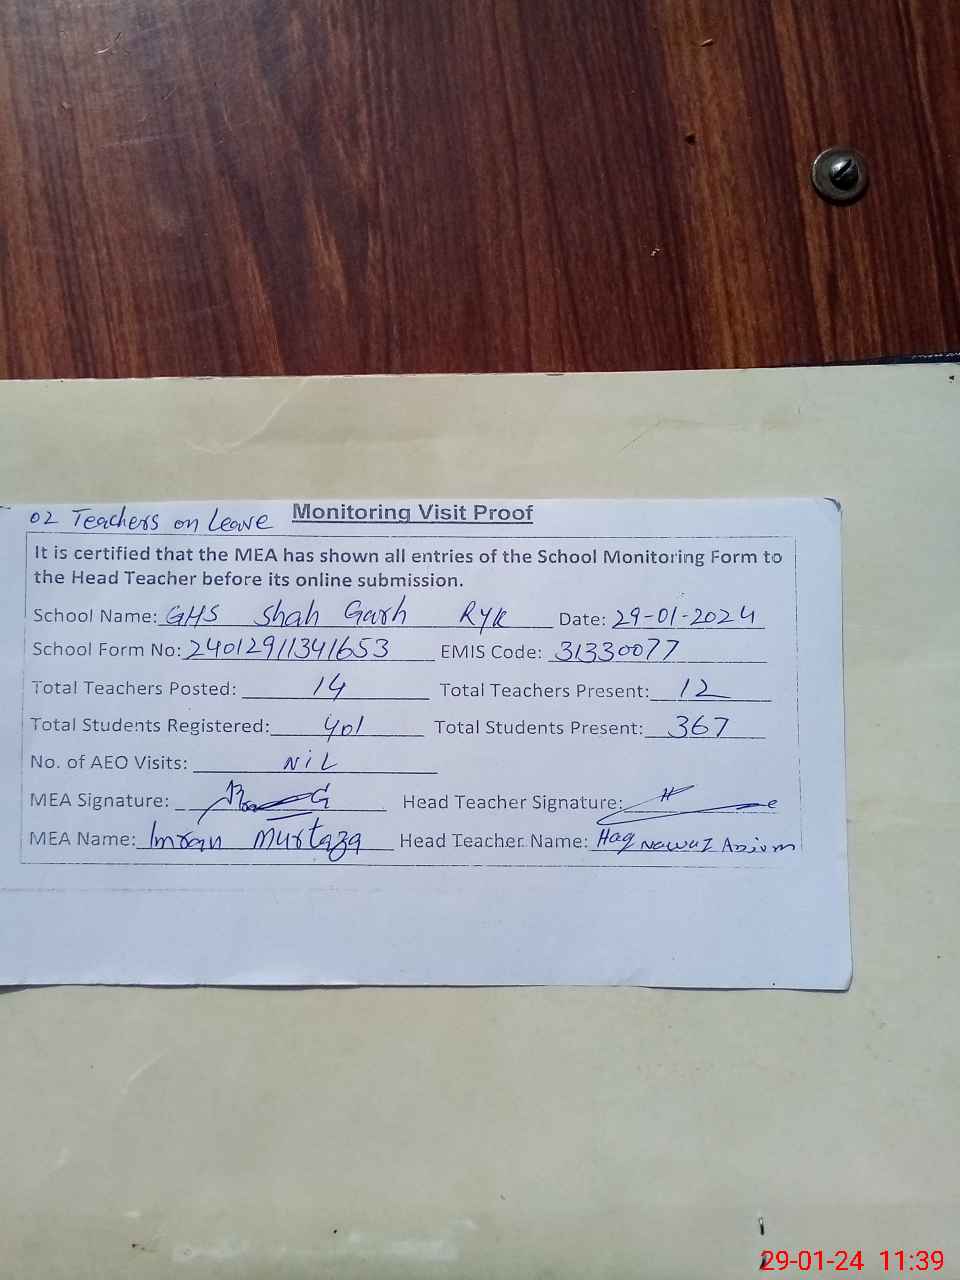 02 Teachers on Leave Monitoring Visit Proof
It is certified that the MEA has shown all entries of the School Monitoring Form to
the Head Teacher before its online submission.
School Name: GHS Shah Garh RYK Date: 29-01-2024
School Form No: 24012911341653 EMIS Code: 31330077
Total Teachers Posted: 14 Total Teachers Present: 12
Total Students Registered: 401 Total Students Present: 367
No. of AEO Visits: NiL
MEA Signature: Head Teacher Signature:
MEA Name: Imran Murtaza Head Teacher Name: Haq Nawaz
29-01-24 11:39